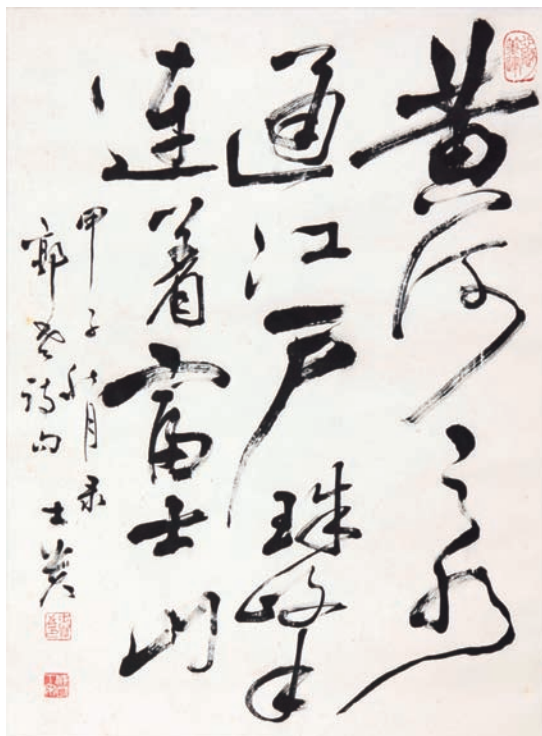 黄河之水
通江户珠峰
連着富士山
甲子秋月录
郭老诗句 士